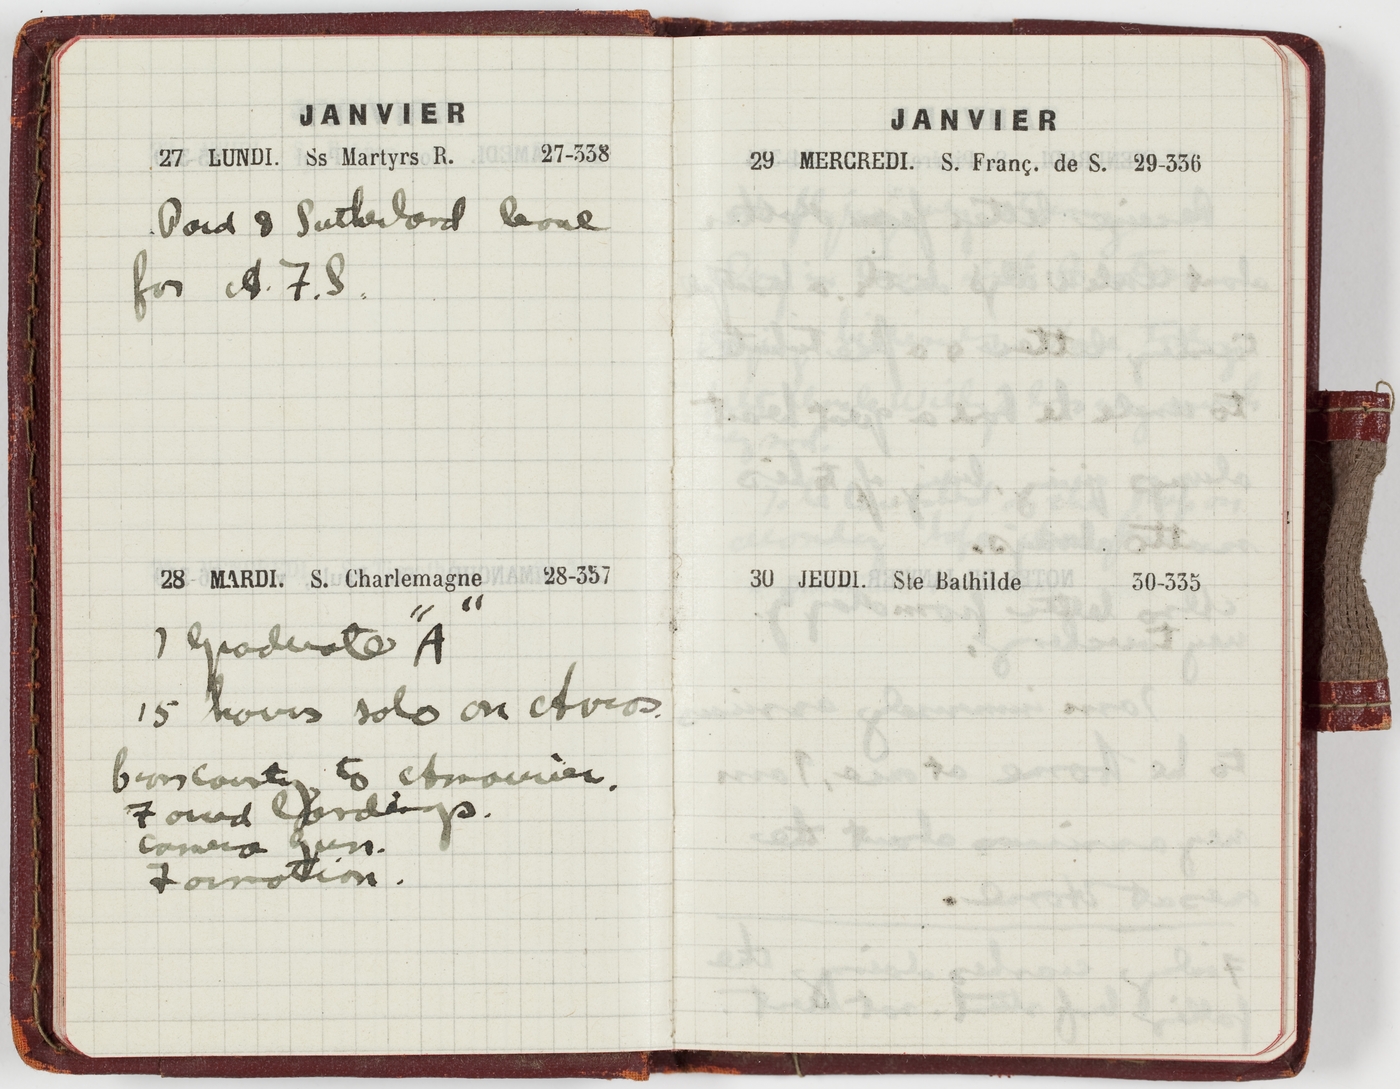 JANVIER
27 LUNDI. Ss Martyrs R. 27-338
Paid & Sutherland leave
for A.F.S.
28 MARDI. S. Charlemagne 28-337
I graduate "A"
15 hours solo on Avros.
to
Forced landings.
Camera Gun.
Formation.
JANVIER
29 MERCREDI. S. Franç. de S. 29-336
30 JEUDI. Ste Bathilde 30-335